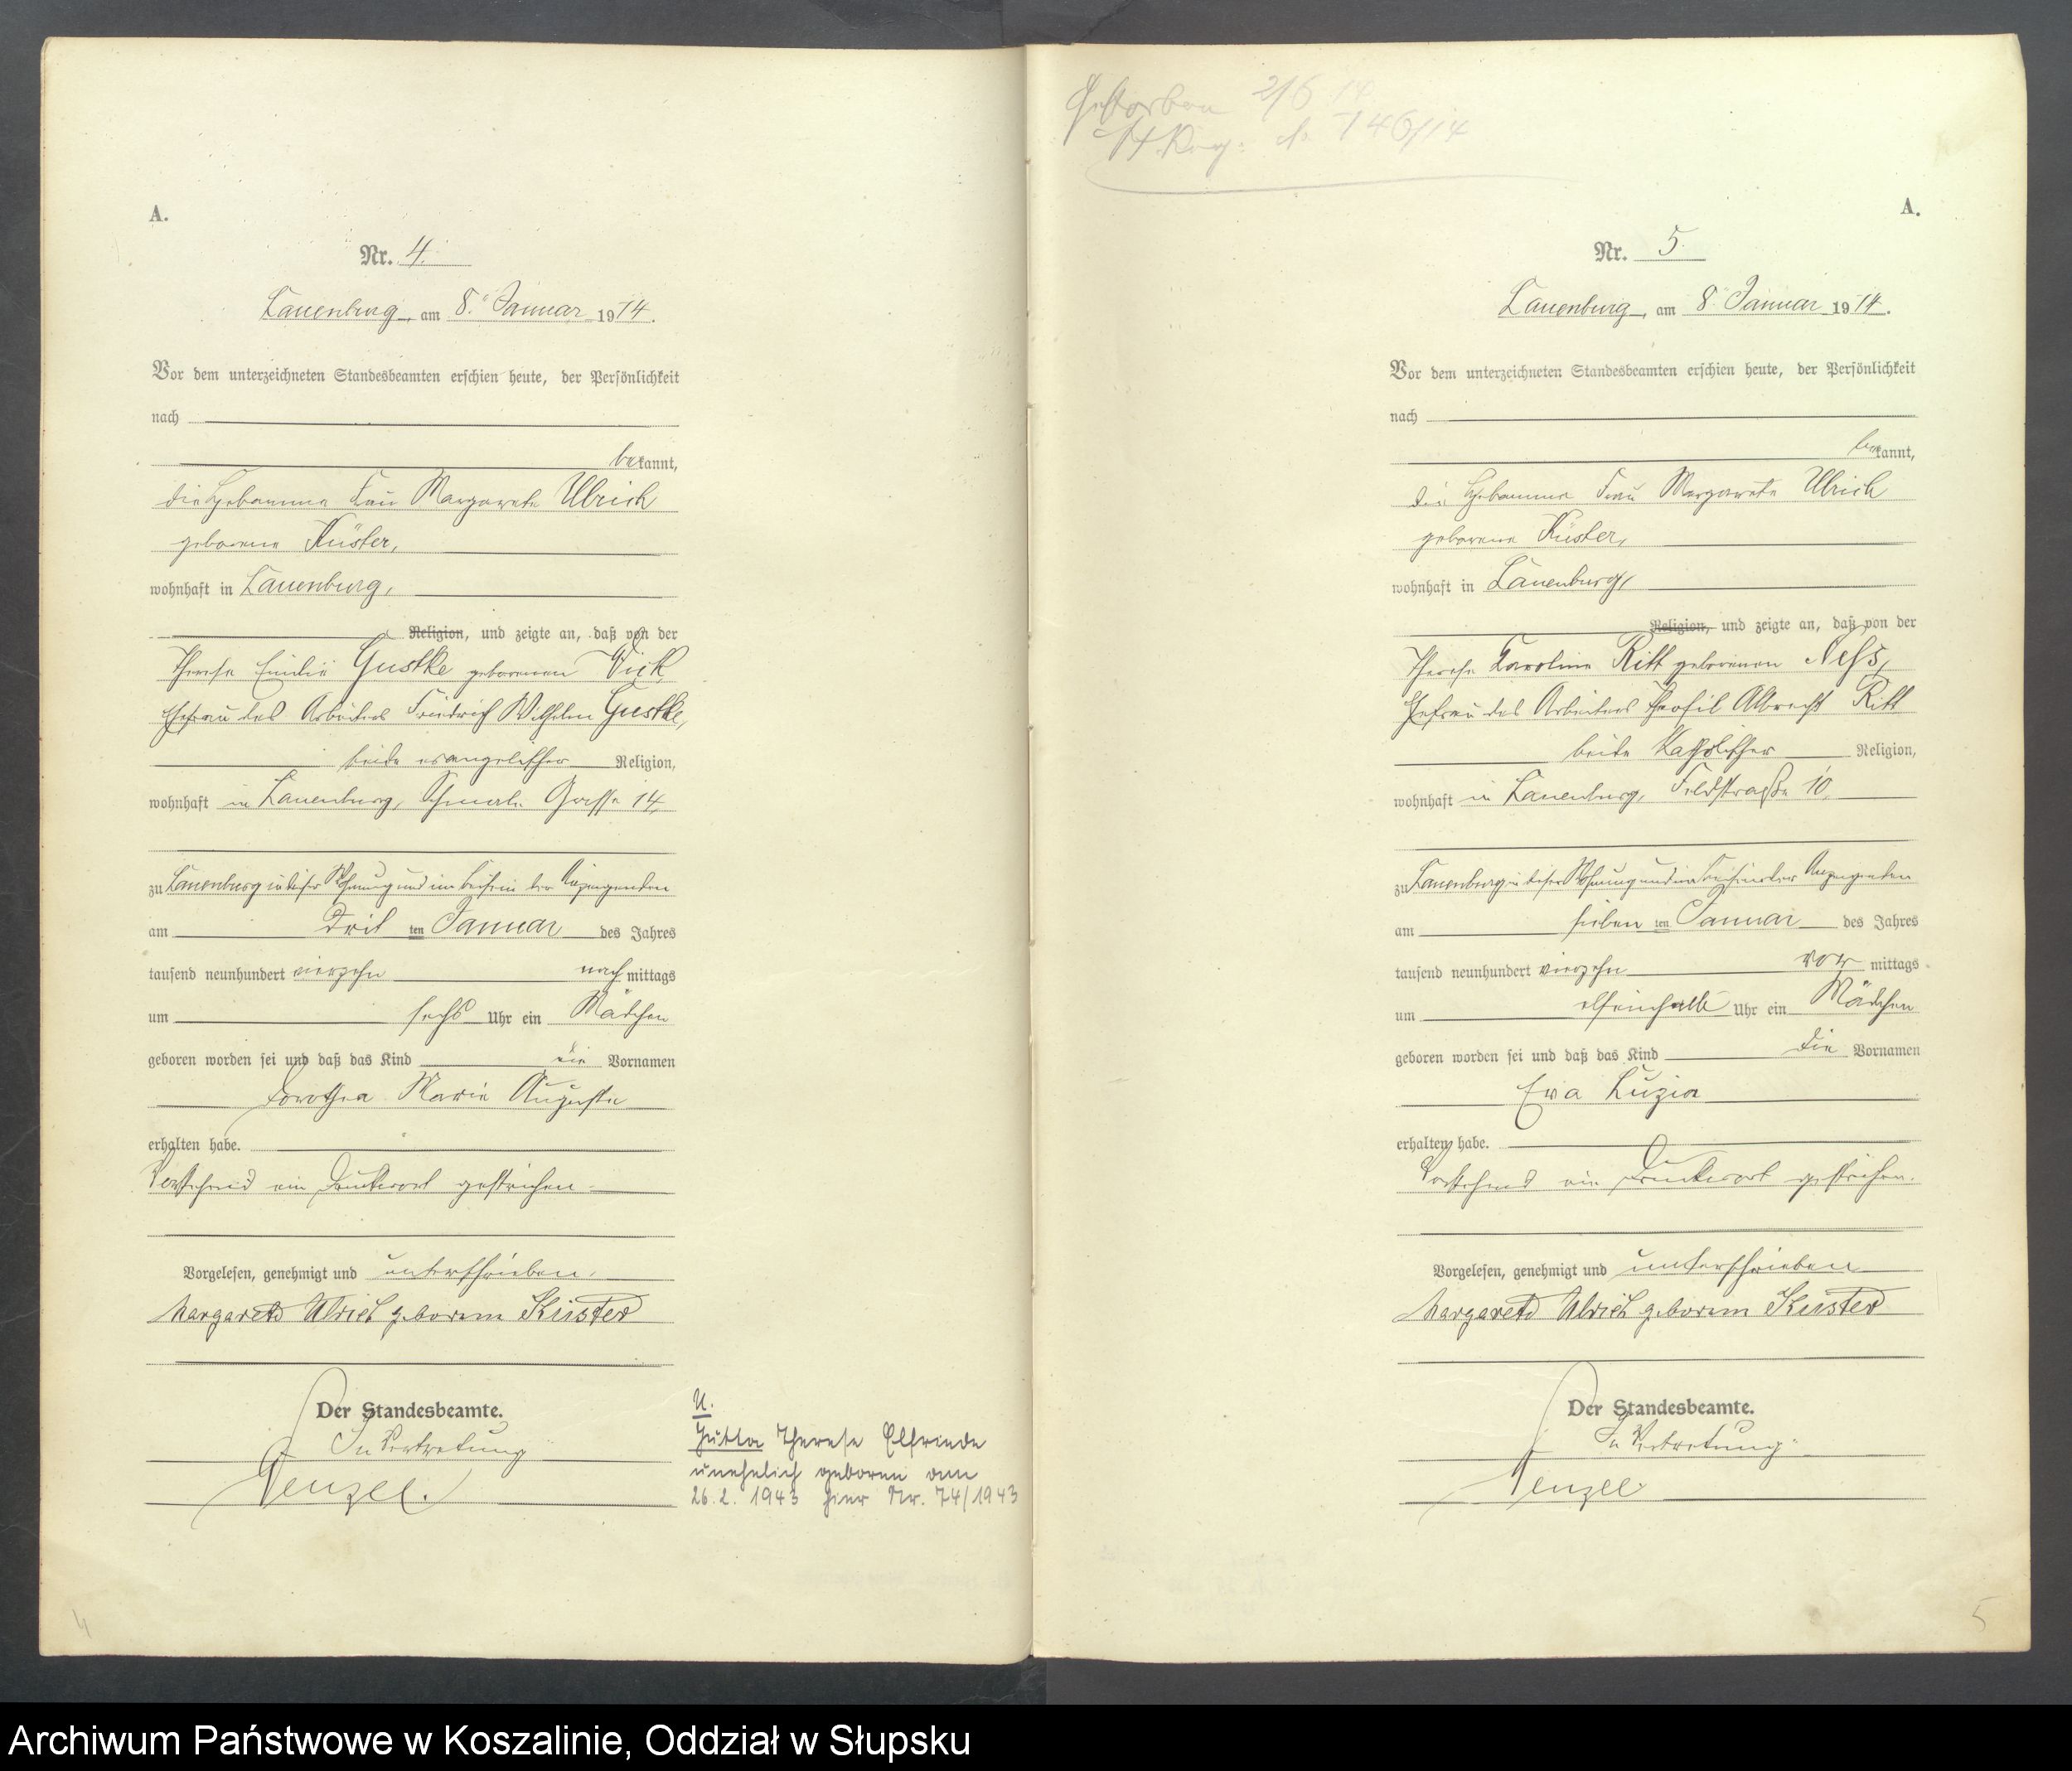 A.
Nr. 4.
Lauenburg, am 8. Januar 1914.
Vor dem unterzeichneten Standesbeamten erschien heute, der Persönlichkeit
nach
bekannt,
die Hebamme Frau Margarete Ulrich
geborene Küster,
wohnhaft in Lauenburg,
Religion, und zeigte an, daß von der
Therese Emilie Gustke geborenen Dick
Ehefrau des Arbeiters Friedrich Wilhelm Gustke,
beide evangelischer Religion,
wohnhaft in Lauenburg, Schmale Gasse 14,
zu Lauenburg in dieser Wohnung und im Beisein der Anzeigenden
am drit ten Januar des Jahres
tausend neunhundert vierzehn nach mittags
um sechs Uhr ein Mädchen
geboren worden sei und daß das Kind die Vornamen
Dorothea Marie Auguste
erhalten habe.
Vorstehend ein Druckwort gestrichen.
Vorgelesen, genehmigt und unterschrieben.
Margarete Ulrich geborene Küster
Der Standesbeamte.
In Vertretung
Wenzel.
U.
Jutta Therese Elfriede
unehelich geboren am
26.2.1943 hier Nr. 74/1943
4
Gestorben 2/6 14.
St. Reg. No. 146/14
A.
Nr. 5.
Lauenburg, am 8. Januar 1914.
Vor dem unterzeichneten Standesbeamten erschien heute, der Persönlichkeit
nach
bekannt,
die Hebamme Frau Margarete Ulrich
geborene Küster,
wohnhaft in Lauenburg,
Religion, und zeigte an, daß von der
Therese Karoline Ritt geborenen Neß,
Ehefrau des Arbeiters Theofil Albrecht Ritt
beide katholischer Religion,
wohnhaft in Lauenburg, Feldstraße 10,
zu Lauenburg in dieser Wohnung und im Beisein der Anzeigenden
am sieben ten Januar des Jahres
tausend neunhundert vierzehn vor mittags
um elfeinhalb Uhr ein Mädchen
geboren worden sei und daß das Kind die Vornamen
Eva Luzia
erhalten habe.
Vorstehend ein Druckwort gestrichen.
Vorgelesen, genehmigt und unterschrieben
Margarete Ulrich geborene Küster
Der Standesbeamte.
In Vertretung.
Wenzel.
5
Archiwum Państwowe w Koszalinie, Oddział w Słupsku